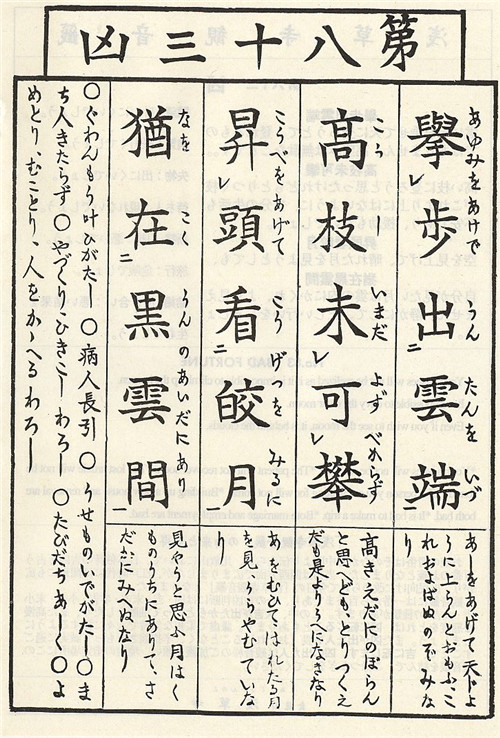 第八十三凶
あゆみをあげて うんたんを いづ
擧レ歩出二雲端
あしをあげて天上よ
うにいらんとおもふ、こ
れおよばぬのぞみな
り
こうし いまだ よず べからず
高枝未レ可レ攀
高きえだにのぼらん
と思へども、とりつくえ
だも是よりうへになきなり
こうべをあげて こうげを みる
昇レ頭看二皎月
あをむひてはれたる月
を見、うらやむていな
り
なを こくうんのあいだにあり
猶在二黒雲間一
見やうと思ふ月はく
ものうちにありて、さ
だかにみへぬなり
○ぐわんもう叶ひがたし○病人長引○うせものいでがたし○ま
ち人きたらず○やづくり、ひきこしわろし○たびだちあし○よ
めとり、むことり、人をかゝへるわろし